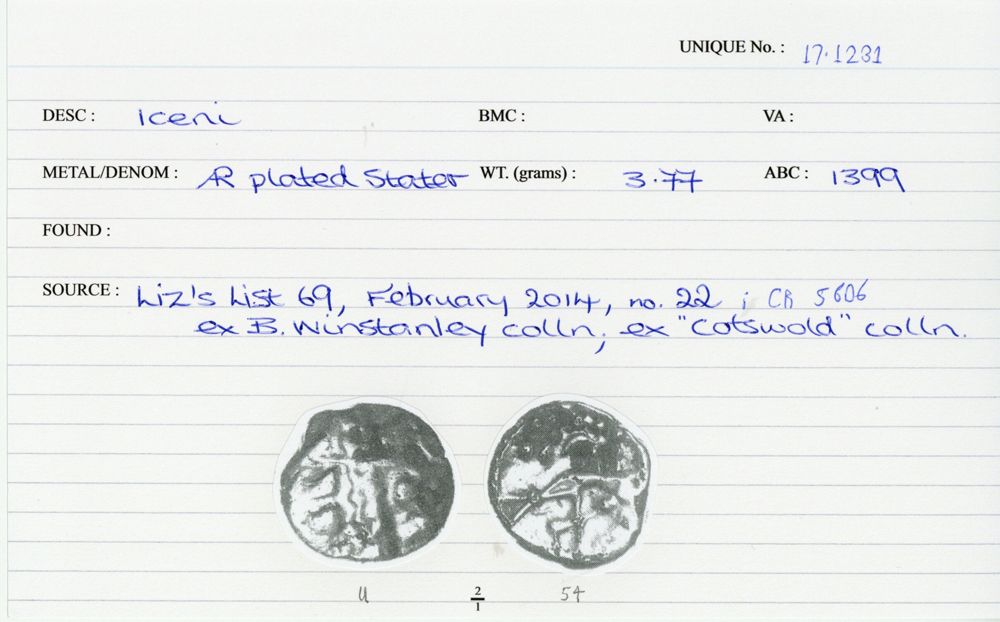 UNIQUE No. : 17.1231
DESC : Iceni BMC : VA :
METAL/DENOM : AR plated Stater WT. (grams) : 3.77 ABC : 1399
FOUND :
SOURCE : Liz's List 69, February 2014, no. 22 ; CR 5606
ex B. Winstanley colln; ex "Cotswold" colln.
U 2/1 54